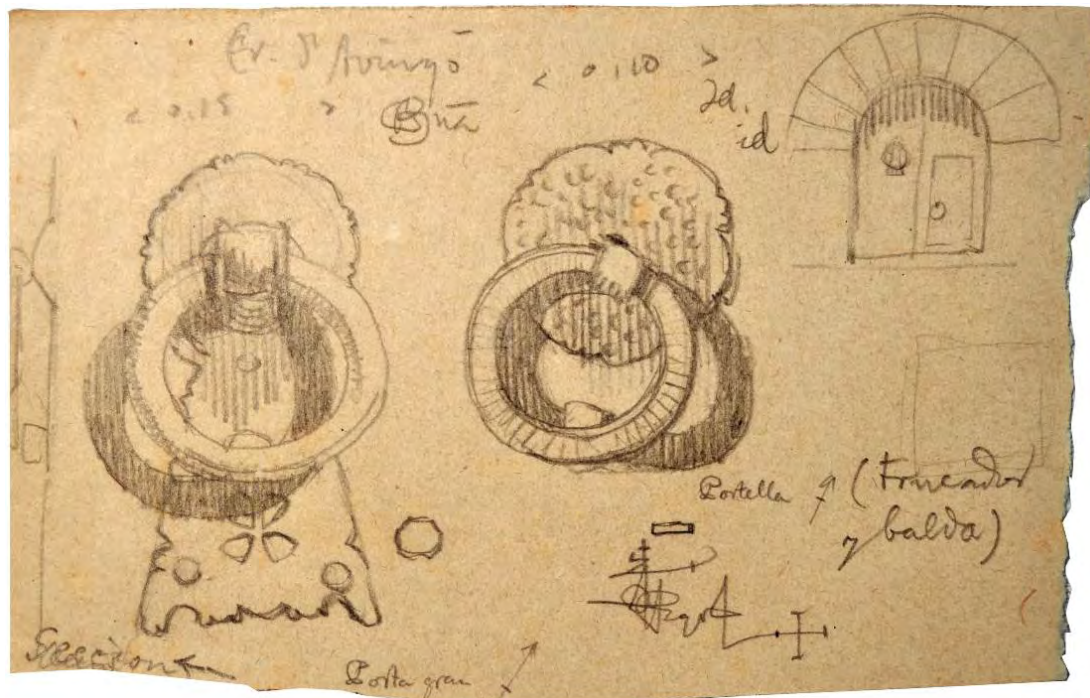 Cr. d'Avinyó
< 0,15 >
Bna
< 0,10 >
Id.
id
Portella
(Trucador
y balda)
Seccion
Porta gran